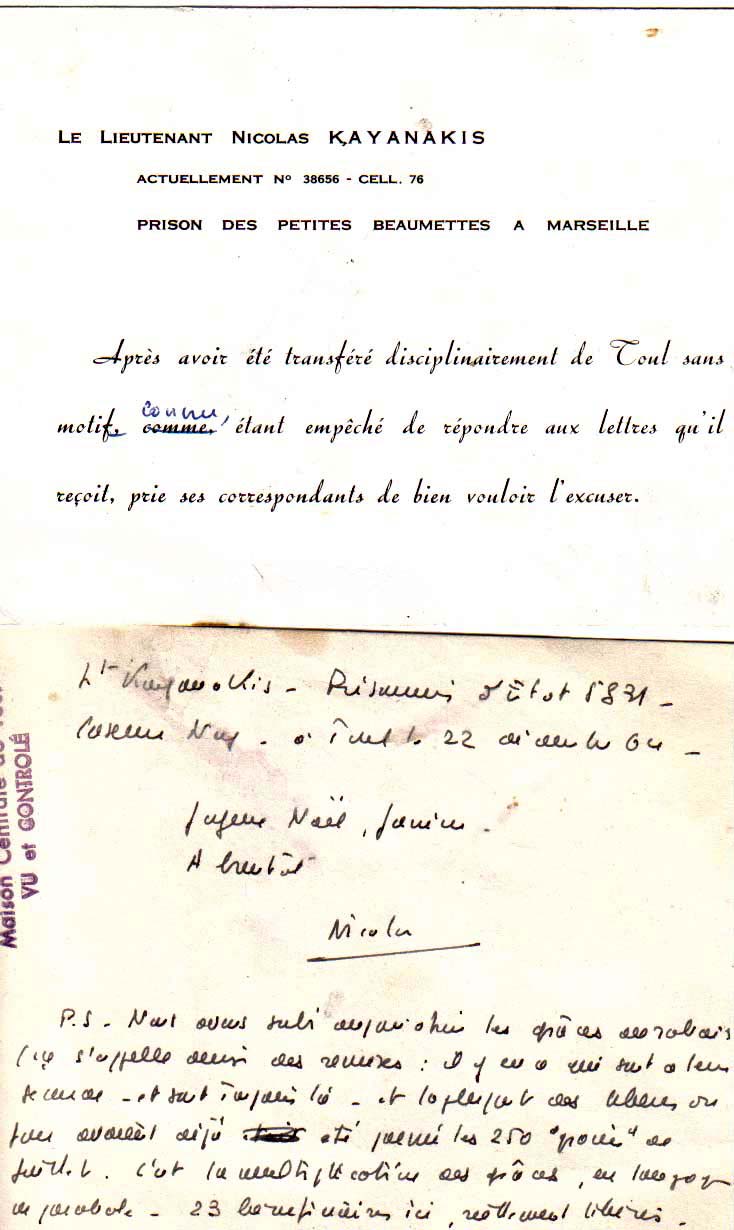 LE LIEUTENANT NICOLAS KAYANAKIS
ACTUELLEMENT Nº 38656 - CELL. 76
PRISON DES PETITES BEAUMETTES A MARSEILLE
Après avoir été transféré disciplinairement de Toul sans
connu,
motif, comme, étant empêché de répondre aux lettres qu'il
reçoit, prie ses correspondants de bien vouloir l'excuser.
Maison Centrale de
VU et CONTROLÉ
Lt Kayanakis - Prisonnier d'État 5831 -
Caserne Ney - à Toul le 22 décembre 64 -
Joyeux Noël, Janine.
A bientôt
Nicolas
P.S - Nous avons subi aujourd'hui les grâces au rabais
(ça s'appelle aussi des remises : il y en a qui sont à leur
seconde - et sont toujours là - et la plupart des libérés du
jour avaient déjà été parmi les 250 "graciés" de
juillet. C'est la multiplication des grâces, en langage
de parabole - 23 bénéficiaires ici, réellement libérés.